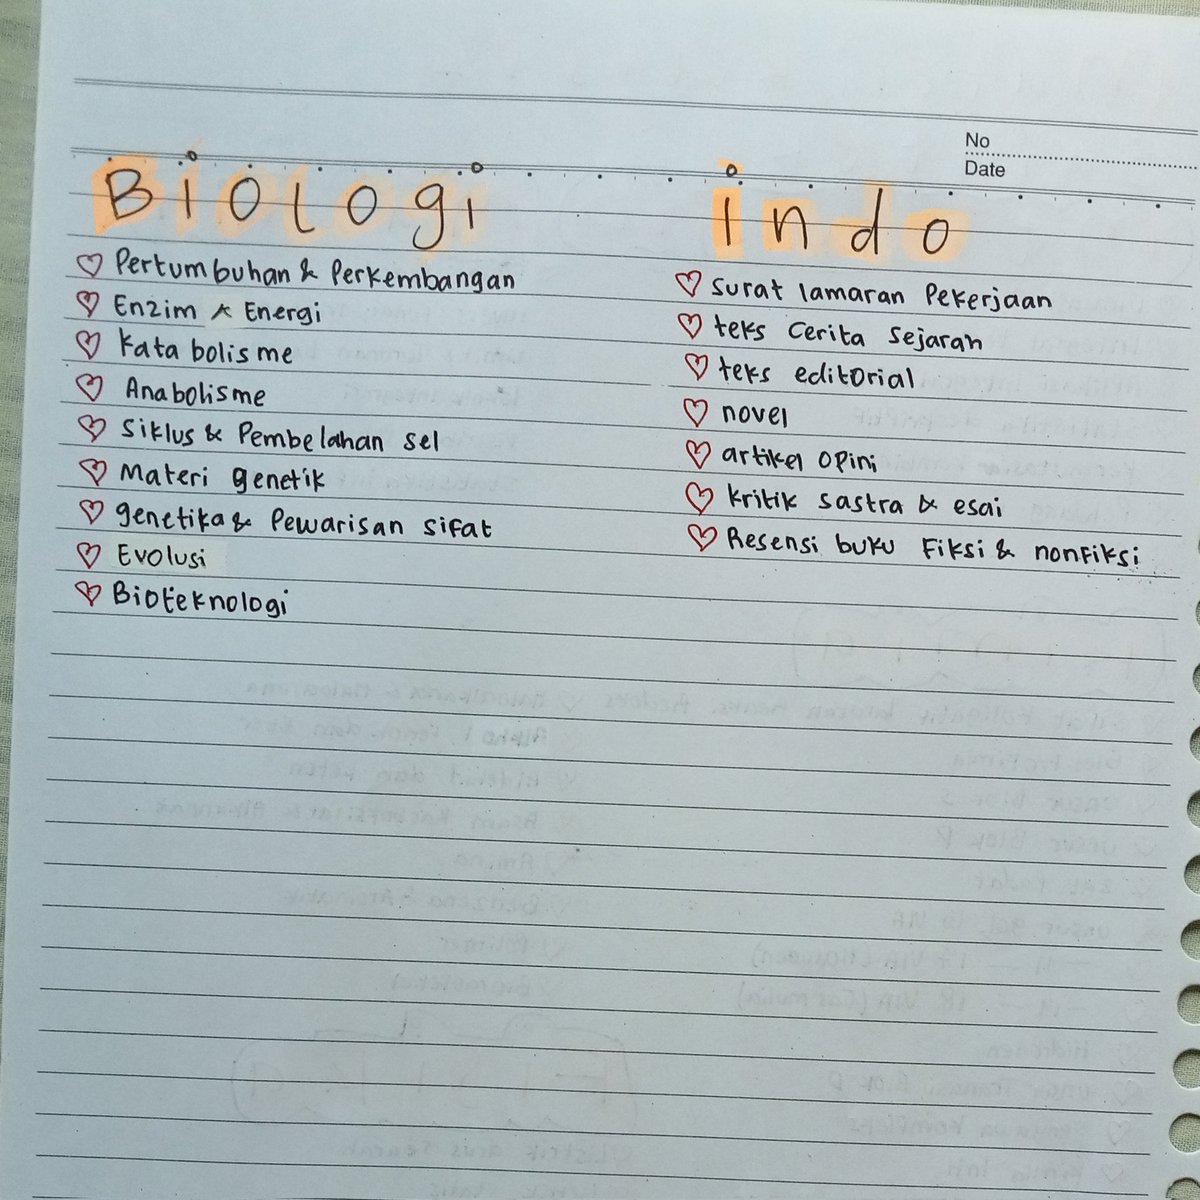 No
Date
Biologi
Pertumbuhan & Perkembangan
Enzim & Energi
Katabolisme
Anabolisme
Siklus & Pembelahan sel
Materi genetik
genetika & Pewarisan sifat
Evolusi
Bioteknologi
indo
surat lamaran Pekerjaan
teks Cerita Sejarah
teks editorial
novel
artikel opini
kritik sastra & esai
Resensi buku Fiksi & nonfiksi